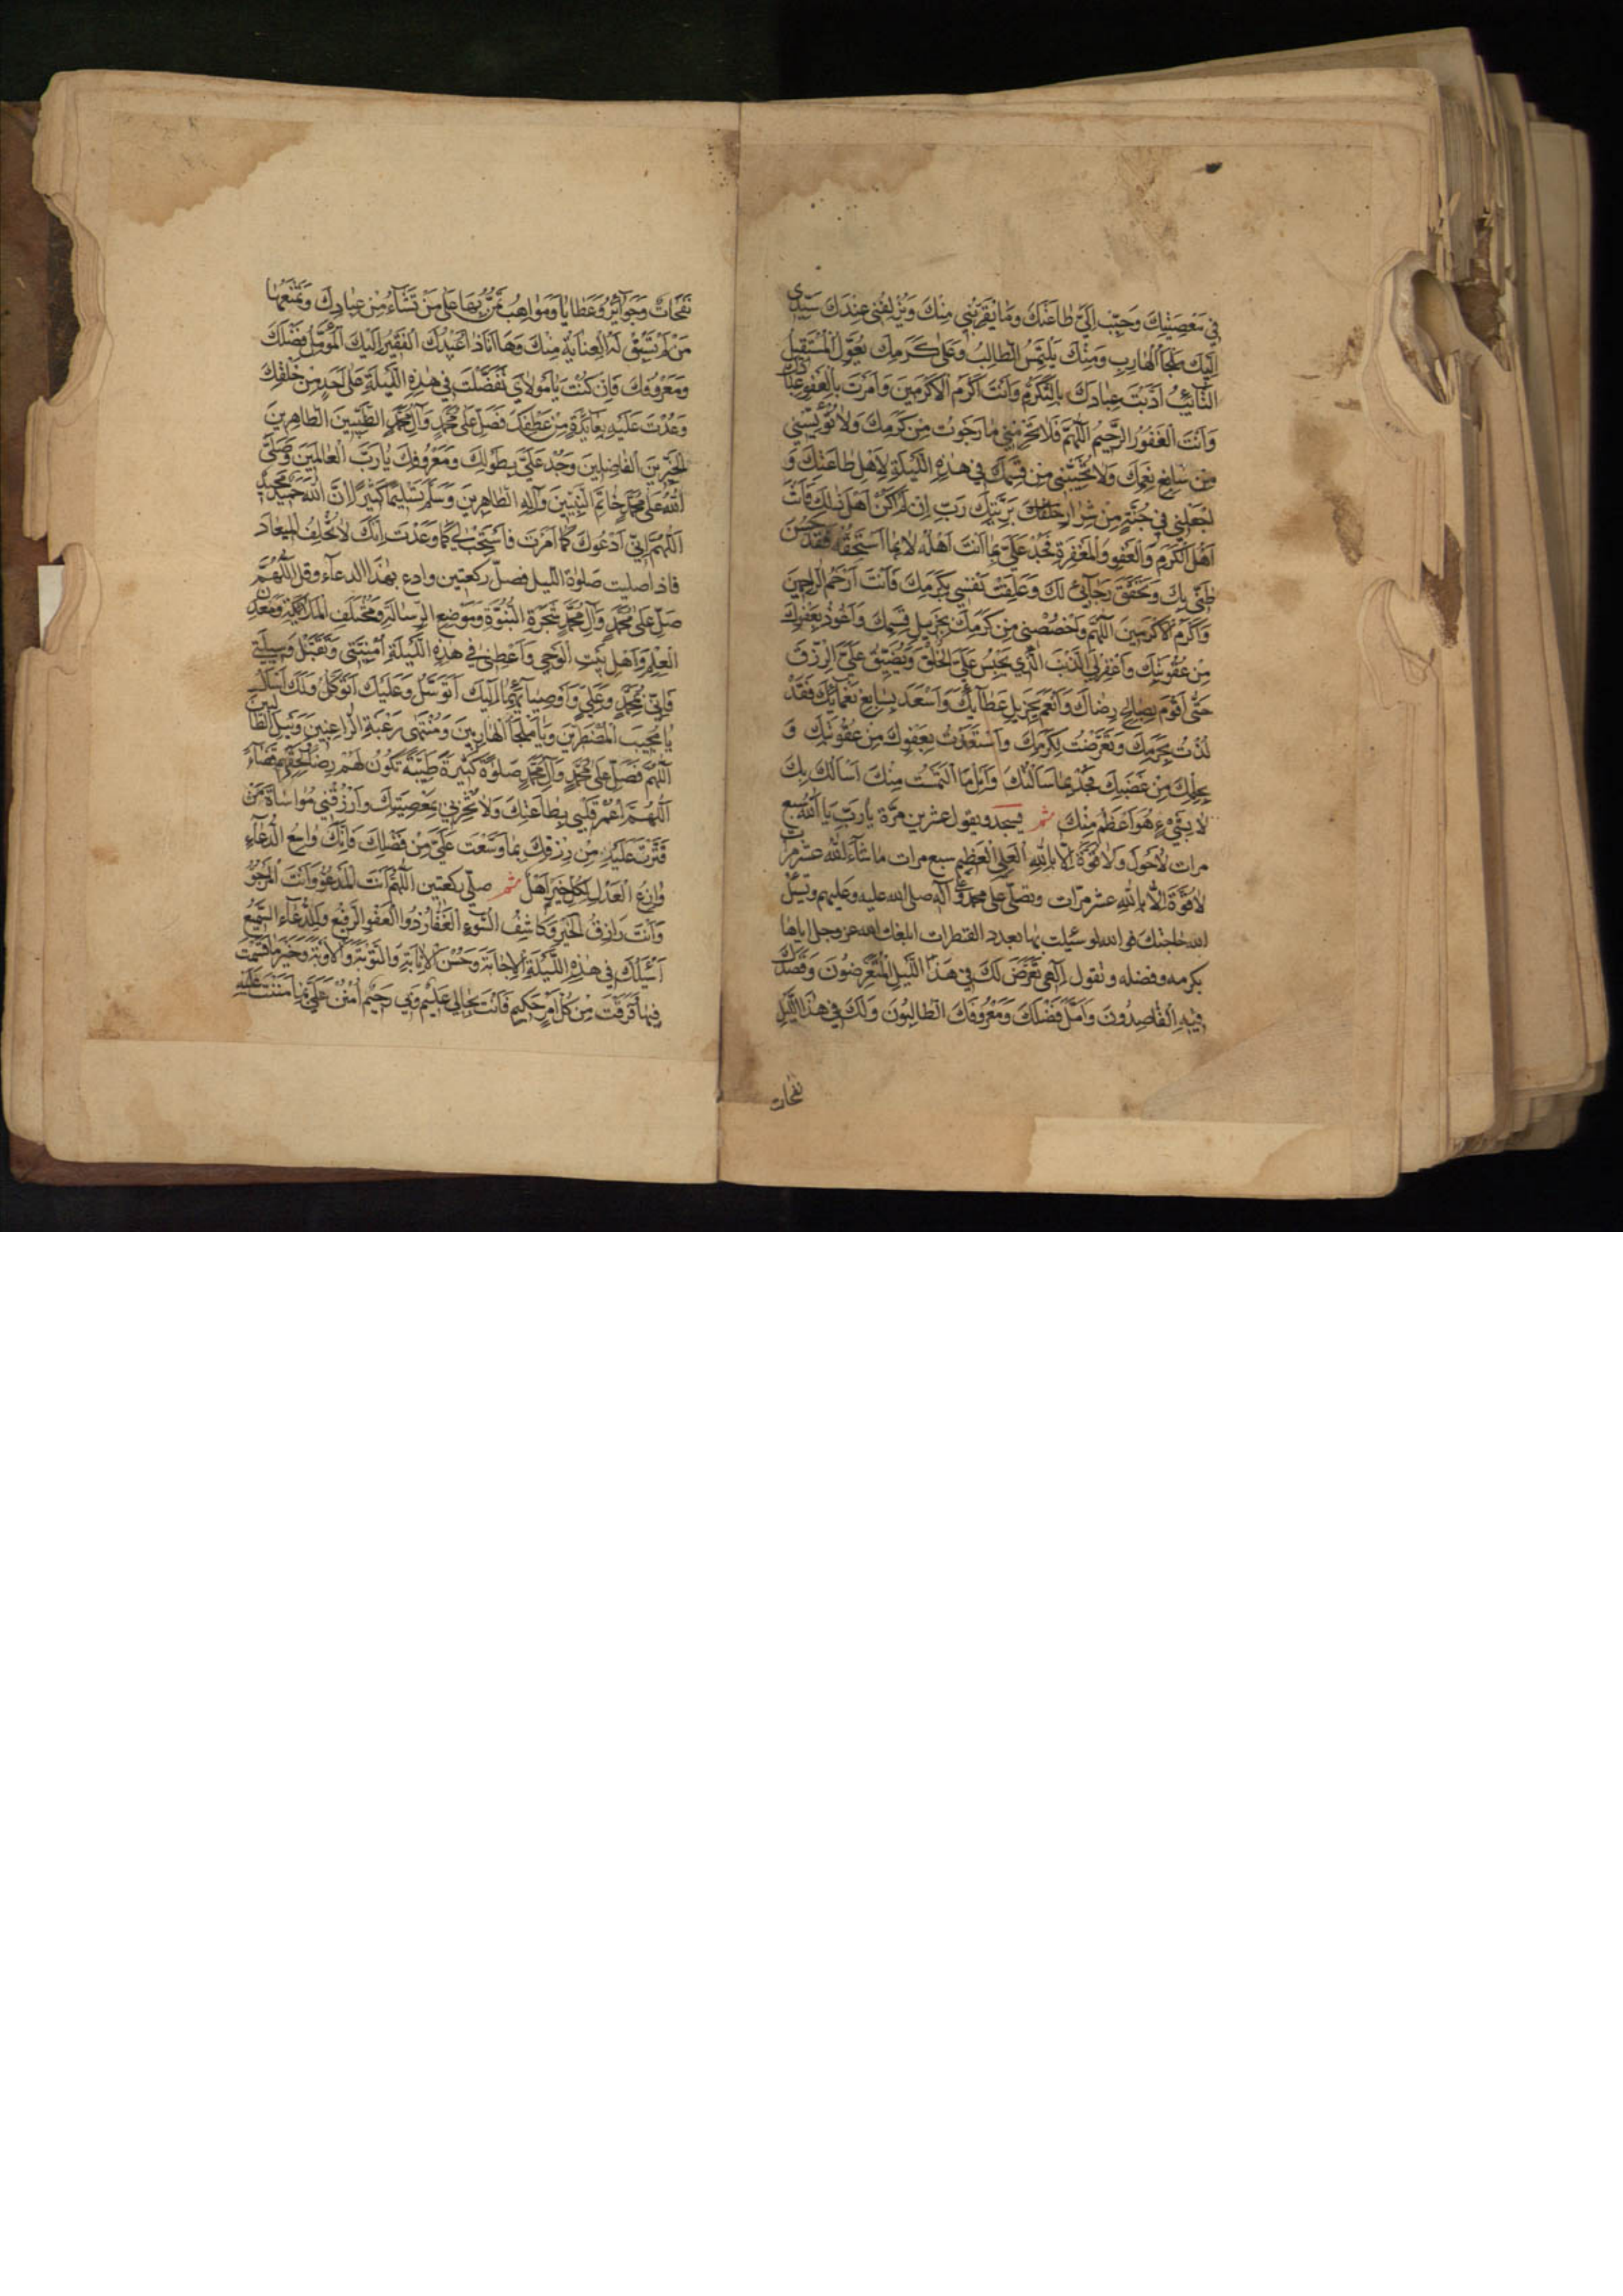 في مَعْصِيَتِكَ وَحَبِّبْ اِلَيَّ طاعَتَكَ وَمَا يُقَرِّبُني مِنْكَ وَيُزْلِفُني عِنْدَكَ سَيِّدي
اِلَيْكَ يَلْجَأُ الْهارِبُ وَمِنْكَ يَلْتَمِسُ الطّالِبُ وَعَلى كَرَمِكَ يُعَوِّلُ الْمُسْتَقيلُ
التّائِبُ اَدَّبْتَ عِبادَكَ بِالتَّكَرُّمِ وَاَنْتَ اَكْرَمُ الْاَكْرَمينَ وَاَمَرْتَ بِالْعَفْوِ عِبادَكَ
وَاَنْتَ الْغَفُورُ الرَّحيمُ اَللّهُمَّ فَلا تَحْرِمْني ما رَجَوْتُ مِنْ كَرَمِكَ وَلا تُؤْيِسْني
مِنْ سابِغِ نِعَمِكَ وَلا تُخَيِّبْني مِنْ قِسَمِكَ في هذِهِ اللَّيْلَةِ لِاَهْلِ طاعَتِكَ وَ
اجْعَلْني في جُنَّةٍ مِنْ شِرارِ خَلْقِكَ بَرِيَّتِكَ رَبِّ اِنْ لَمْ اَكُنْ اَهْلَ ذلِكَ فَاَنْتَ
اَهْلُ الْكَرَمِ وَالْعَفْوِ وَالْمَغْفِرَةِ فَجُدْ عَلَيَّ بِما اَنْتَ اَهْلُهُ لا بِما اَسْتَحِقُّهُ فَقَدْ حَسُنَ
ظَنّي بِكَ وَتَحَقَّقَ رَجآئي لَكَ وَعَلِقَتْ نَفْسي بِكَرَمِكَ فَاَنْتَ اَرْحَمُ الرّاحِمينَ
وَاَكْرَمُ الْاَكْرَمينَ اَللّهُمَّ وَاخْصُصْني مِنْ كَرَمِكَ بِجَزيلِ قِسَمِكَ وَاَعُوذُ بِعَفْوِكَ
مِنْ عُقُوبَتِكَ وَاغْفِرْ لِيَ الذَّنْبَ الَّذي يَحْبِسُ عَلَيَّ الْخُلُقَ وَيُضَيِّقُ عَلَيَّ الرِّزْقَ
حَتّى اَقُومَ بِصالِحِ رِضاكَ وَاَنْعَمَ بِجَزيلِ عَطآئِكَ وَاَسْعَدَ بِسابِغِ نَعْمآئِكَ فَقَدْ
لُذْتُ بِحَرَمِكَ وَتَعَرَّضْتُ لِكَرَمِكَ وَاسْتَعَذْتُ بِعَفْوِكَ مِنْ عُقُوبَتِكَ وَ
بِحِلْمِكَ مِنْ غَضَبِكَ فَجُدْ بِما سَاَلْتُكَ وَاَنِلْ مَا الْتَمَسْتُ مِنْكَ اَسْاَلُكَ بِكَ
لا بِشَيْءٍ هُوَ اَعْظَمُ مِنْكَ ثم يسجد ويقول عشرين مرّة يا رَبِّ يا اَللهُ سبع
مرات لا حَوْلَ وَلا قُوَّةَ اِلّا بِاللهِ الْعَلِيِّ الْعَظيمِ سبع مرات ما شآءَ اللهُ عشر مرات
لا قُوَّةَ اِلّا بِاللهِ عشر مرّات وتصلّي على محمد وآله صلى الله عليه وعليهم وتسئل
الله حاجتك فوالله لو سئلت بها بعدد القطرات لبلغك الله عز وجل اياها
بكرمه وفضله وتقول اِلهي تَعَرَّضَ لَكَ في هَذَا اللَّيْلِ الْمُتَعَرِّضُونَ وَقَصَدَكَ
فيهِ الْقاصِدُونَ وَاَمَّلَ فَضْلَكَ وَمَعْرُوفَكَ الطّالِبُونَ وَلَكَ في هذَا اللَّيْلِ
نفحات
نَفَحاتٌ وَجَوآئِزُ وَعَطايا وَمَواهِبُ تَمُنُّ بِها عَلى مَنْ تَشآءُ مِنْ عِبادِكَ وَتَمْنَعُها
مَنْ لَمْ تَسْبِقْ لَهُ الْعِنايَةُ مِنْكَ وَها اَنَا ذا عَبْدُكَ الْفَقيرُ اِلَيْكَ الْمُؤَمِّلُ فَضْلَكَ
وَمَعْرُوفَكَ فَاِنْ كُنْتَ يا مَوْلايَ تَفَضَّلْتَ في هذِهِ اللَّيْلَةِ عَلى اَحَدٍ مِنْ خَلْقِكَ
وَعُدْتَ عَلَيْهِ بِعآئِدَةٍ مِنْ عَطْفِكَ فَصَلِّ عَلى مُحَمَّدٍ وَآلِ مُحَمَّدٍ الطَّيِّبينَ الطّاهِرينَ
الْخَيِّرينَ الْفاضِلينَ وَجُدْ عَلَيَّ بِطَوْلِكَ وَمَعْرُوفِكَ يا رَبَّ الْعالَمينَ وَصَلَّى
اللهُ عَلى مُحَمَّدٍ خاتَمِ النَّبِيّينَ وَآلِهِ الطّاهِرينَ وَسَلَّمَ تَسْليمًا كَثيرًا اِنَّ اللهَ حَميدٌ مَجيدٌ
اَللّهُمَّ اِنّي اَدْعُوكَ كَما اَمَرْتَ فَاسْتَجِبْ لي كَما وَعَدْتَ اِنَّكَ لا تُخْلِفُ الْميعادَ
فاذا صليت صلوة الليل فصلّ ركعتين وادع بهذا الدعآء وقل اَللّهُمَّ
صَلِّ عَلى مُحَمَّدٍ وَآلِ مُحَمَّدٍ شَجَرَةِ النُّبُوَّةِ وَمَوْضِعِ الرِّسالَةِ وَمُخْتَلَفِ الْمَلآئِكَةِ وَمَعْدِنِ
الْعِلْمِ وَاَهْلِ بَيْتِ الْوَحْيِ وَاَعْطِني في هذِهِ اللَّيْلَةِ اُمْنِيَّتي وَتَقَبَّلْ وَسيلَتي
فَاِنّي بِمُحَمَّدٍ وَعَلِيٍّ وَاَوْصِيآئِهِما اِلَيْكَ اَتَوَسَّلُ وَعَلَيْكَ اَتَوَكَّلُ وَلَكَ اَسْاَلُ
يا مُجيبَ الْمُضْطَرّينَ وَيا مَلْجَاَ الْهارِبينَ وَمُنْتَهى رَغْبَةِ الرّاغِبينَ وَنَيْلَ الطّالِبينَ
اَللّهُمَّ فَصَلِّ عَلى مُحَمَّدٍ وَآلِ مُحَمَّدٍ صَلوةً كَثيرَةً طَيِّبَةً تَكُونُ لَهُمْ رِضًا وَلِحَقِّهِمْ قَضآءً
اَللّهُمَّ اعْمُرْ قَلْبي بِطاعَتِكَ وَلا تُخْزِني بِمَعْصِيَتِكَ وَارْزُقْني مُواساةَ مَنْ
قَتَّرْتَ عَلَيْهِ مِنْ رِزْقِكَ بِما وَسَّعْتَ عَلَيَّ مِنْ فَضْلِكَ فَاِنَّكَ واسِعُ الدُّعآءِ
وازِعُ الْعَدْلِ لِكُلِّ خَيْرٍ اَهْلٌ ثم صلّي ركعتين اَللّهُمَّ اَنْتَ الْمَدْعُوُّ وَاَنْتَ الْمَرْجُوُّ
وَاَنْتَ رازِقُ الْخَيْرِ وَكاشِفُ السُّوءِ الْغَفّارُ ذُو الْعَفْوِ الرَّفيعِ وَالدُّعآءِ السَّميعِ
اَسْئَلُكَ في هذِهِ اللَّيْلَةِ الْاِجابَةَ وَحُسْنَ الْاِنابَةِ وَالتَّوْبَةَ وَالْاَوْبَةَ وَخَيْرَ ما قَسَمْتَ
فيها وَفَرَقْتَ مِنْ كُلِّ اَمْرٍ حَكيمٍ فَاَنْتَ بِحالي عَليمٌ وَبي رَحيمٌ اُمْنُنْ عَلَيَّ بِما مَنَنْتَ عَلَيْهِ